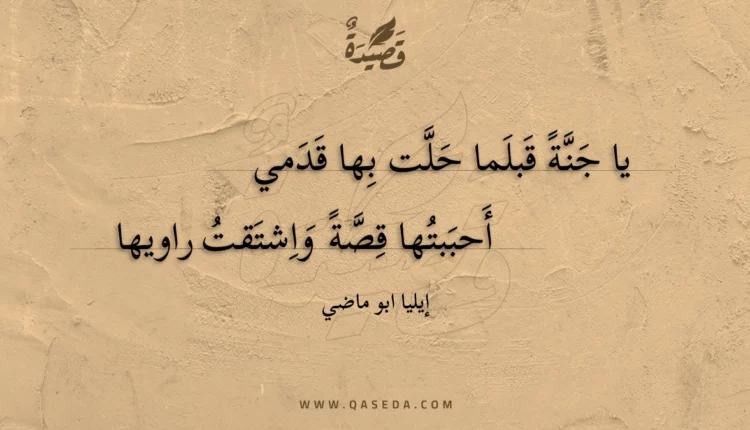 قَصِيْدَةٌ
يا جَنَّةً قَبلَما حَلَّت بِها قَدَمي
أَحبَبتُها قِصَّةً وَاِشتَقتُ راويها
إيليا ابو ماضي
WWW.QASEDA.COM